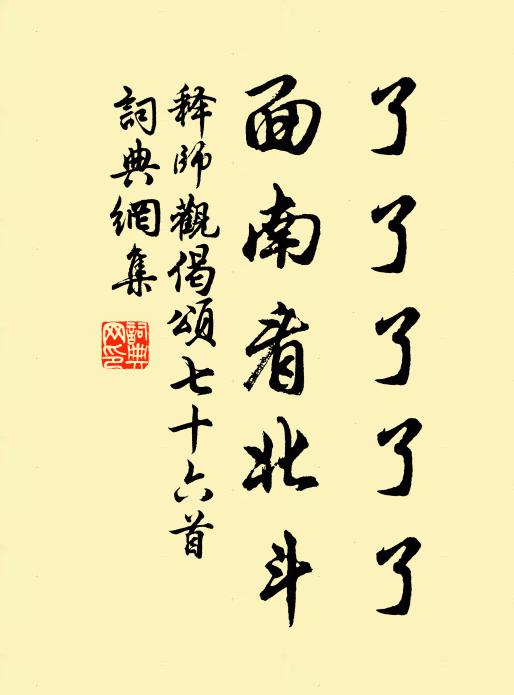 了了了了了
面南看北斗
释师觀偈頌七十六首
詞典網集
詞典網印